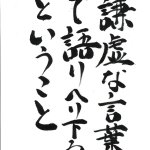 謙虚な言葉
て語りへり下る
ということ